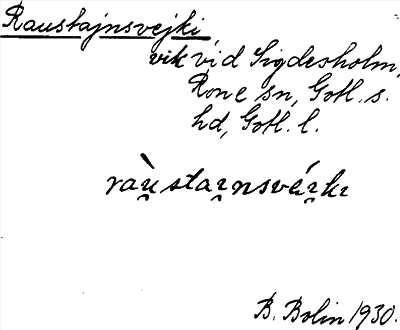 Raustajnsvejki,
vik vid Sigdesholm,
Rone sn, Gotl. s.
hd, Gotl. l.
raù̯staı̯nsvéı̯kı
B. Bolin 1930.